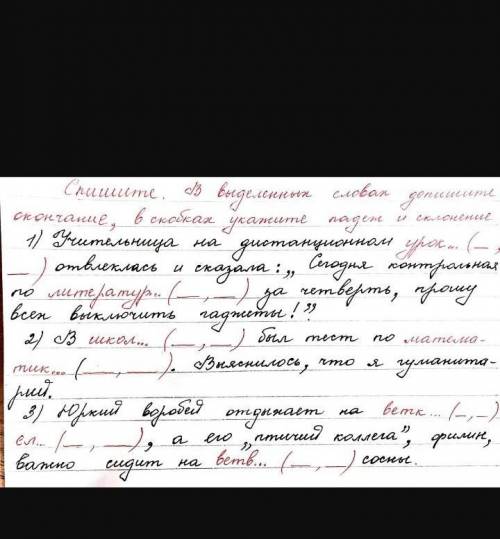 Спишите. В выделенных словах допишите
окончание, в скобках укажите падеж и склонение
1) Учительница на дистанционном урок... (_,
_) отвлеклась и сказала: „Сегодня контрольная
по литератур.. (_, _) за четверть, прошу
всех выключить гаджеты!"
2) В школ... (_, _) был тест по матема-
тик... (_, _). Выяснилось, что я гуманита-
рий.
3) Юркий воробей отдыхает на ветк... (_,_)
ел.. (_, _), а его „птичий коллега", филин,
важно сидит на ветв... (_, _) сосны.